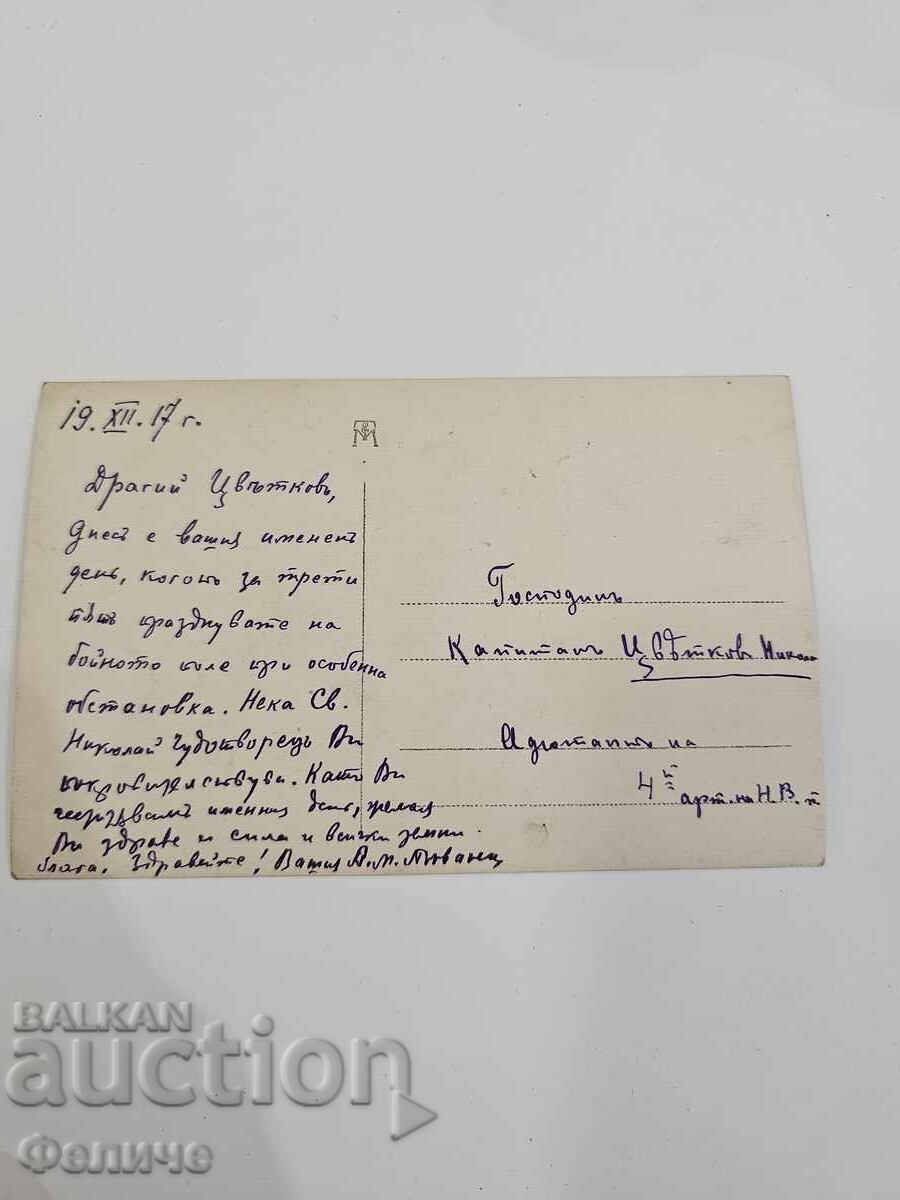 19. XII. 17 г.
Драгий Цвѣтковъ,
Днесъ е вашия имененъ
день, когото за трети
пѫть празднувате на
бойното поле при особенна
обстановка. Нека Св.
Николай Чудотворецъ Ви
покровителствува. Като Ви
имения день, желая
Ви здраве и сила и всички земни
блага. Здравейте! Вашия А. М.
Господинъ
Капитанъ Цвѣтковъ Никола
Адютантъ на
4й арт. на Н. В.
BALKAN
auction
Феличе